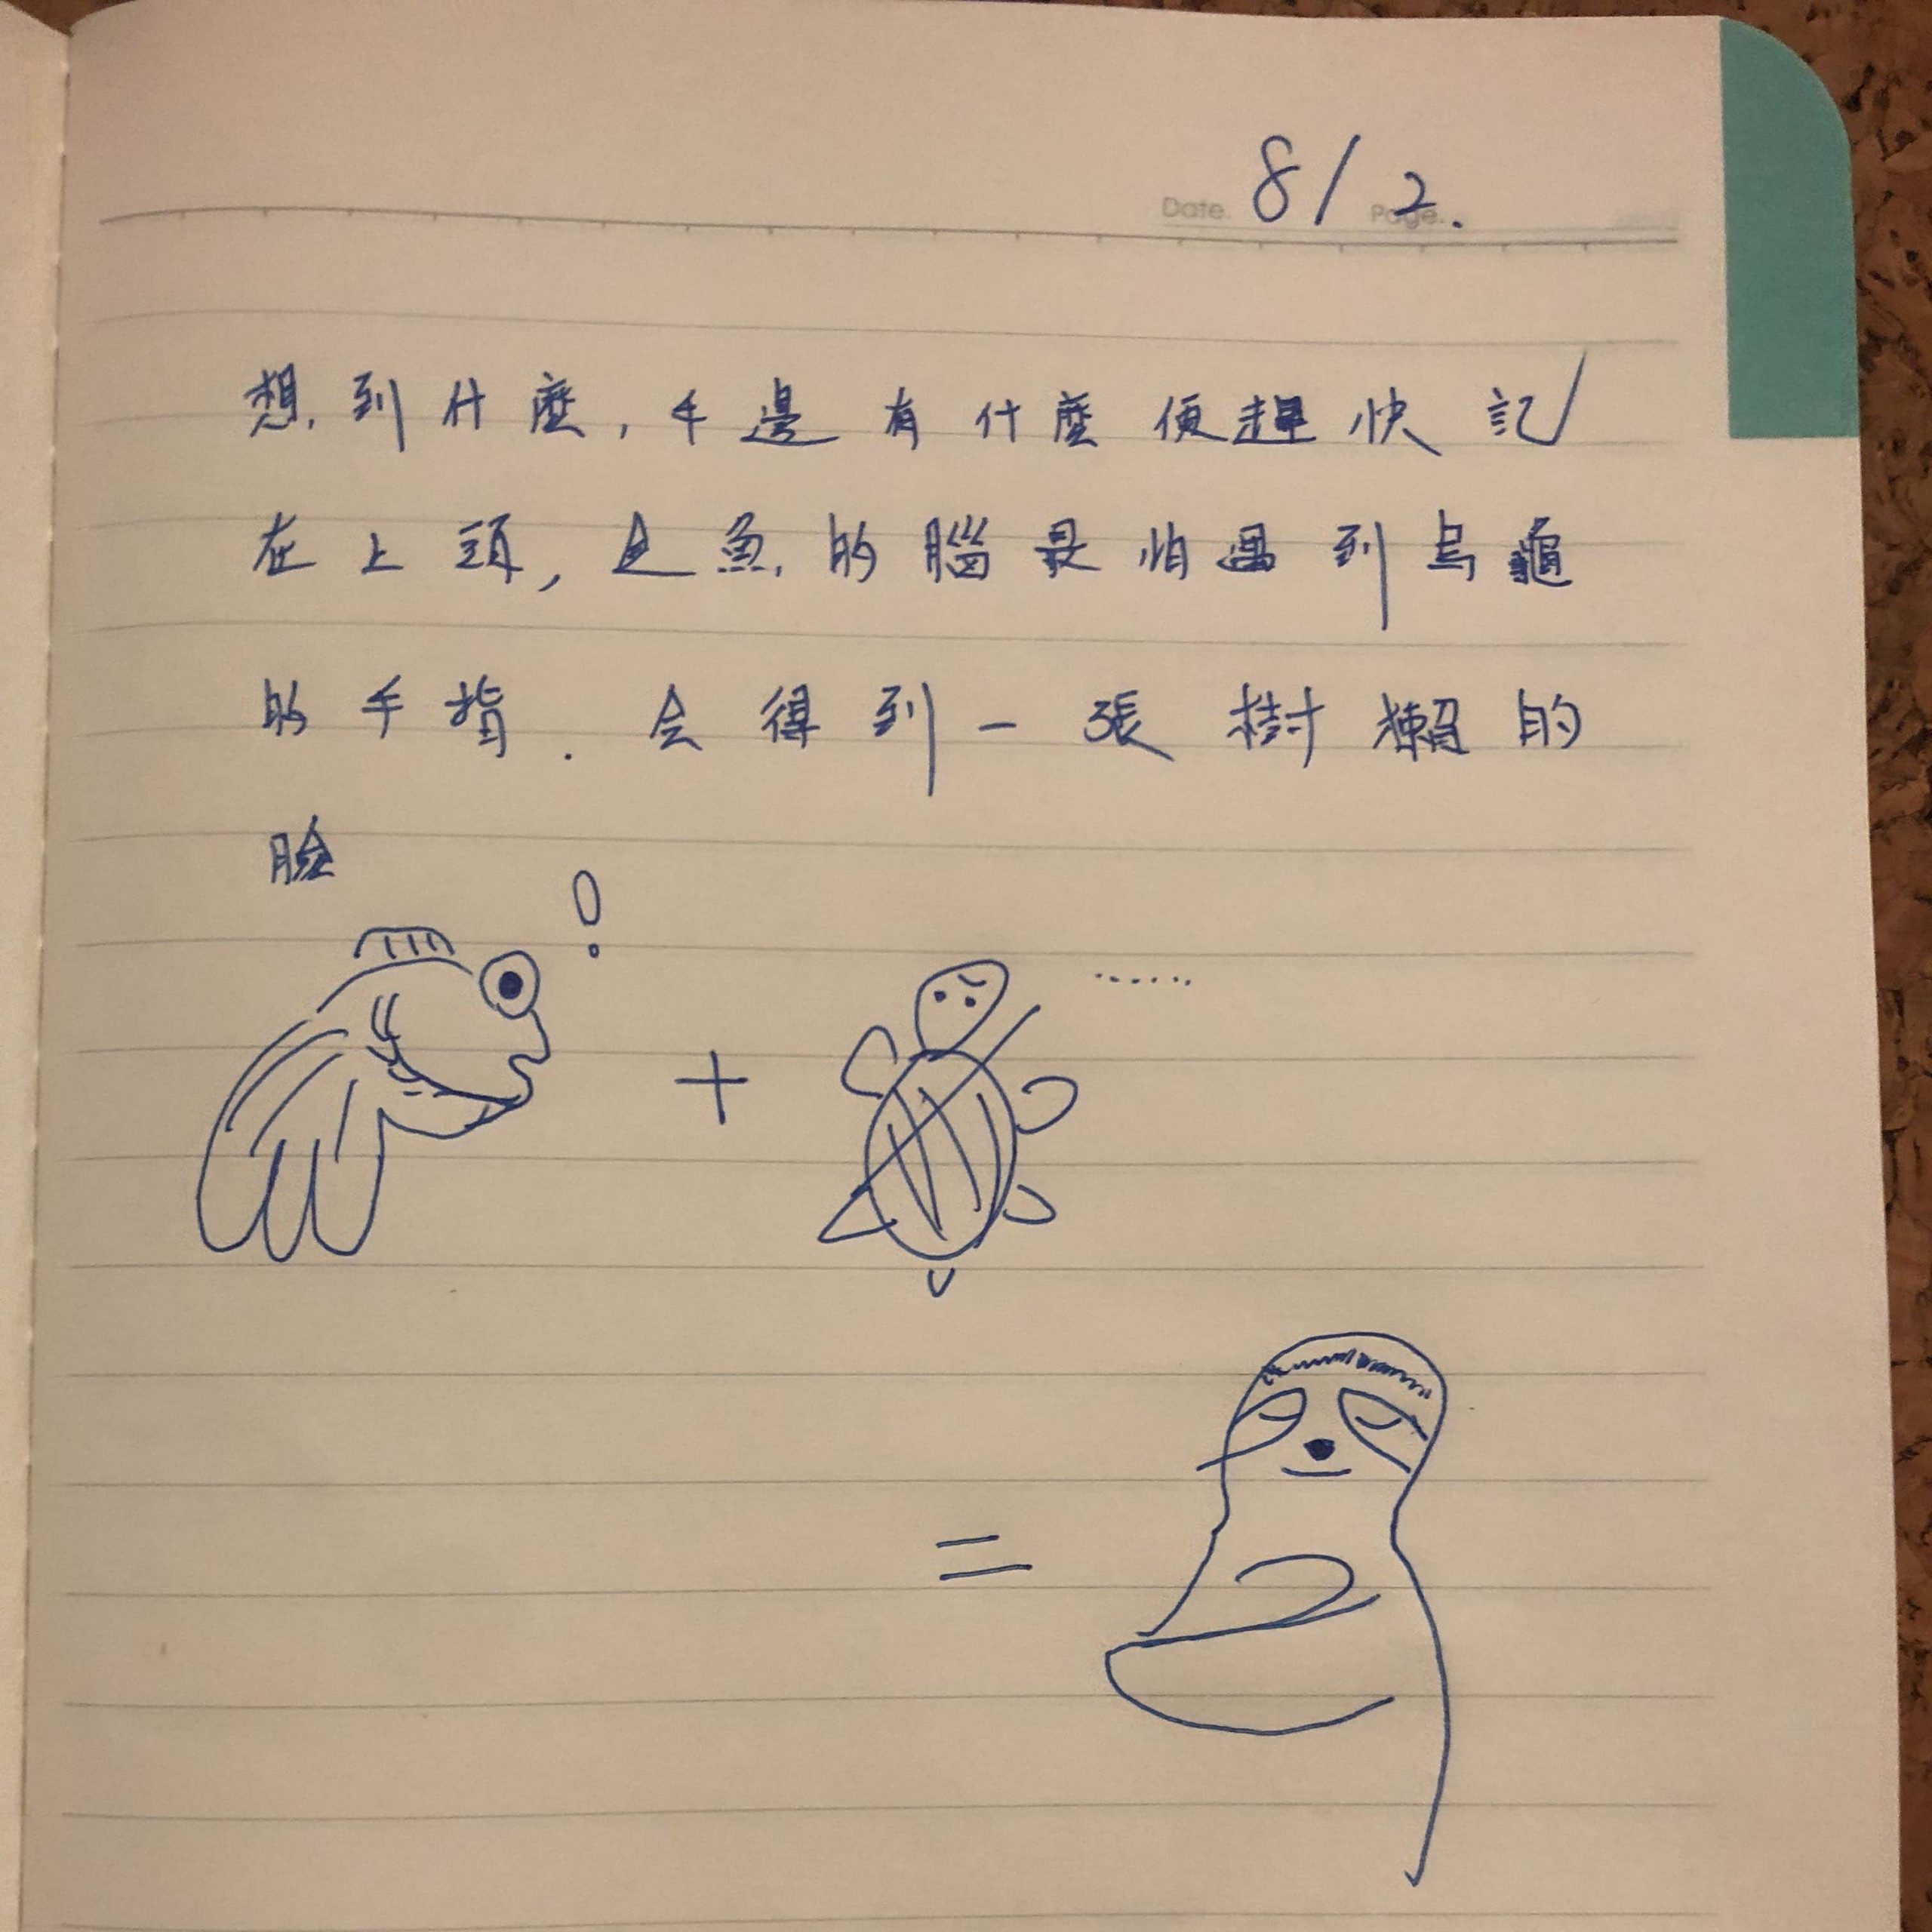 Date. 8/2.
Page.
想到什麼,手邊有什麼便趕快記
在上頭,金魚的腦最怕遇到烏龜
的手指.会得到一張樹懶的
臉
!
+
......
=